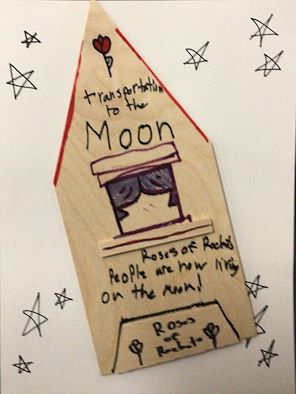 transportation
to the
Moon
Roses of Rockets
People are now living
on the Moon!
Roses
of
Rockets